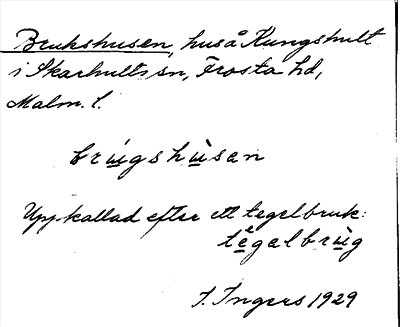 Brukshusen, hus å Kungshult
i Skarhults sn, Frosta hd,
Malm. l.
brúgshùsan
Uppkallad efter ett tegelbruk:
tégalbrùg
I. Ingers 1929